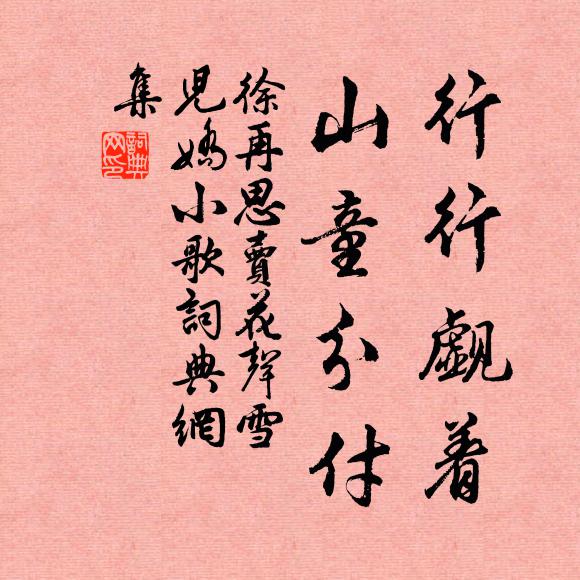 行行觑着
山童分付
徐再思賣花聲雪
兒嬌小歌詞典網
集
詞典
网印